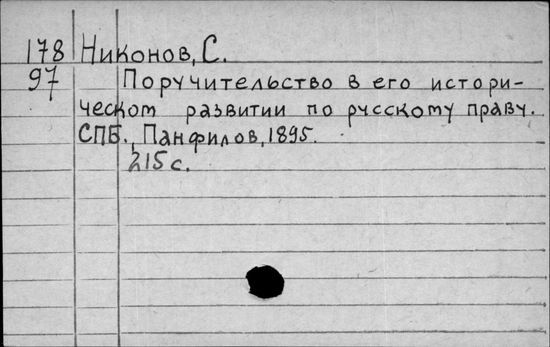 178 Никонов, С.
97 Поручительство в его истори-
ческом развитии по русскому праву.
СПБ., Панфилов, 1895.
215 с.